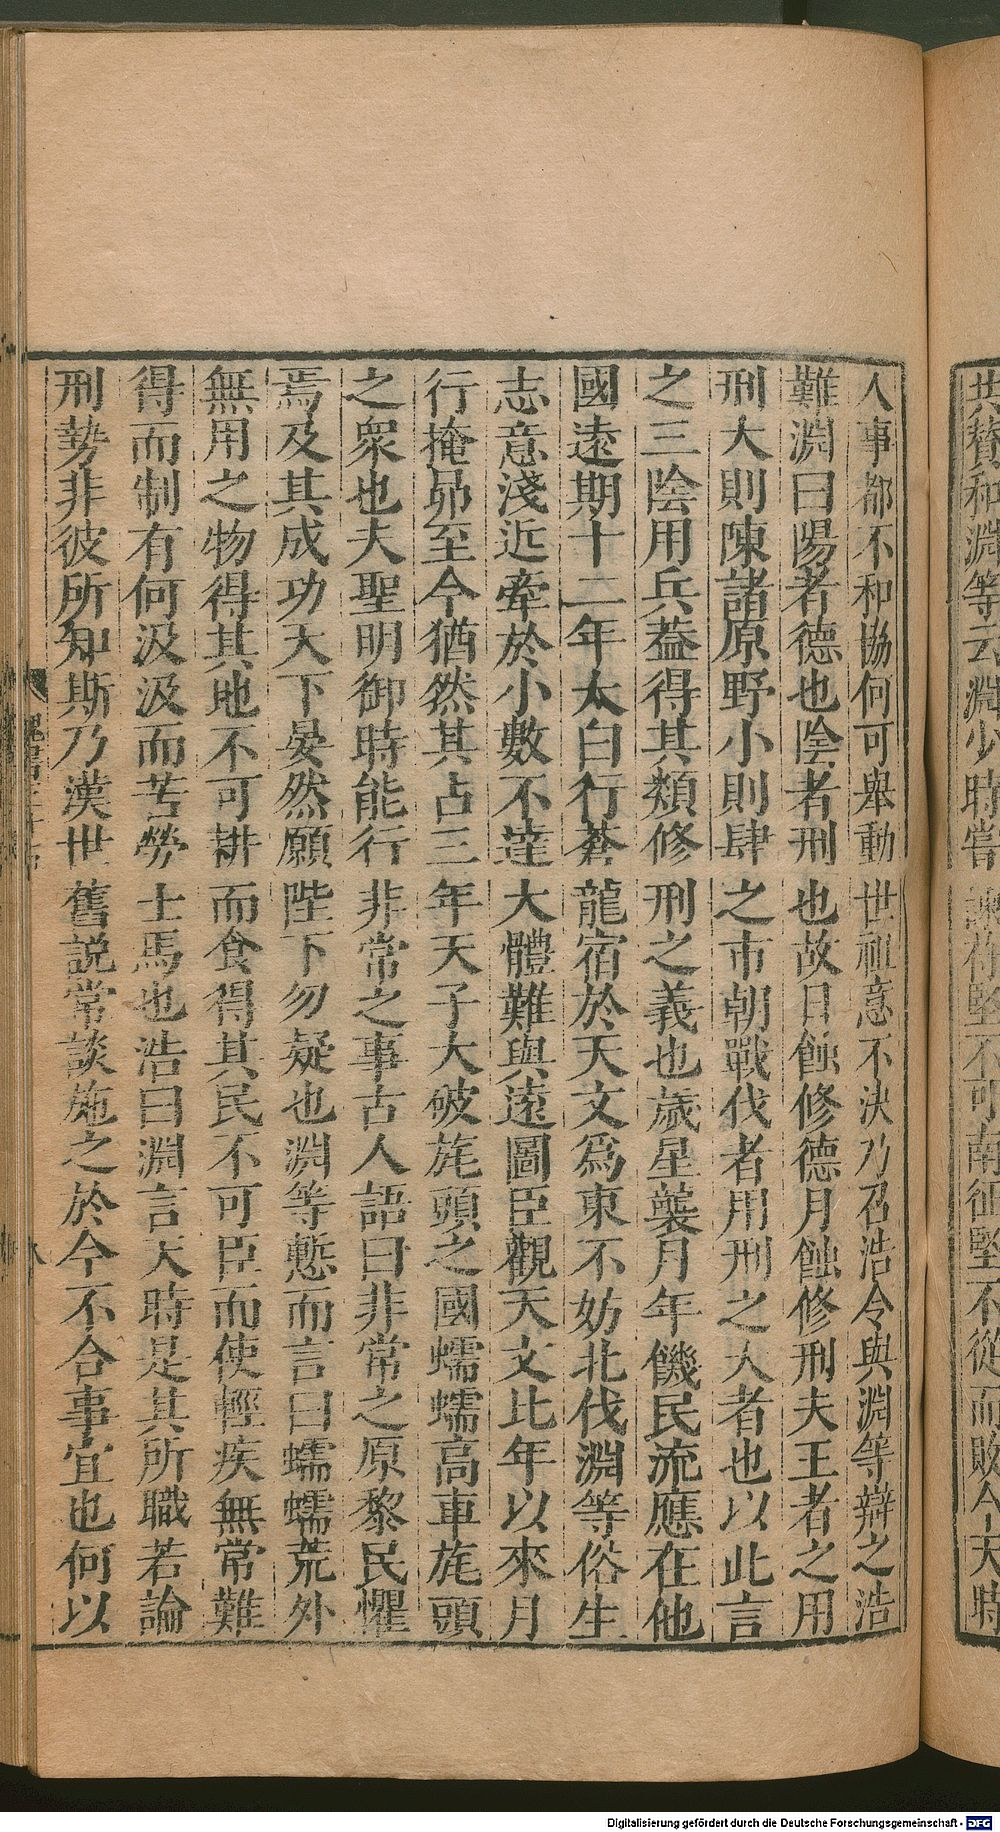 共贊和淵等云淵少時嘗諫苻堅不可南征堅不從而敗今天時
人事都不和協何可舉動世祖意不決乃召浩令與淵等辯之浩
難淵曰陽者德也陰者刑也故日蝕修德月蝕修刑夫王者之用
刑大則陳諸原野小則肆之市朝戰伐者用刑之大者也以此言
之三陰用兵葢得其類修刑之義也歲星襲月年饑民流應在他
國遠期十二年太白行蒼龍宿於天文爲東不妨北伐淵等俗生
志意淺近牽於小數不達大體難與遠圖臣觀天文比年以來月
行掩昴至今猶然其占三年天子大破旄頭之國蠕蠕高車旄頭
之衆也夫聖明御時能行非常之事古人語曰非常之原黎民懼
焉及其成功天下晏然願陛下勿疑也淵等慙而言曰蠕蠕荒外
無用之物得其地不可耕而食得其民不可臣而使輕疾無常難
得而制有何汲汲而苦勞士馬也浩曰淵言天時是其所職若論
刑勢非彼所知斯乃漢世舊説常談施之於今不合事宜也何以
八
Digitalisierung gefördert durch die Deutsche Forschungsgemeinschaft - DFG